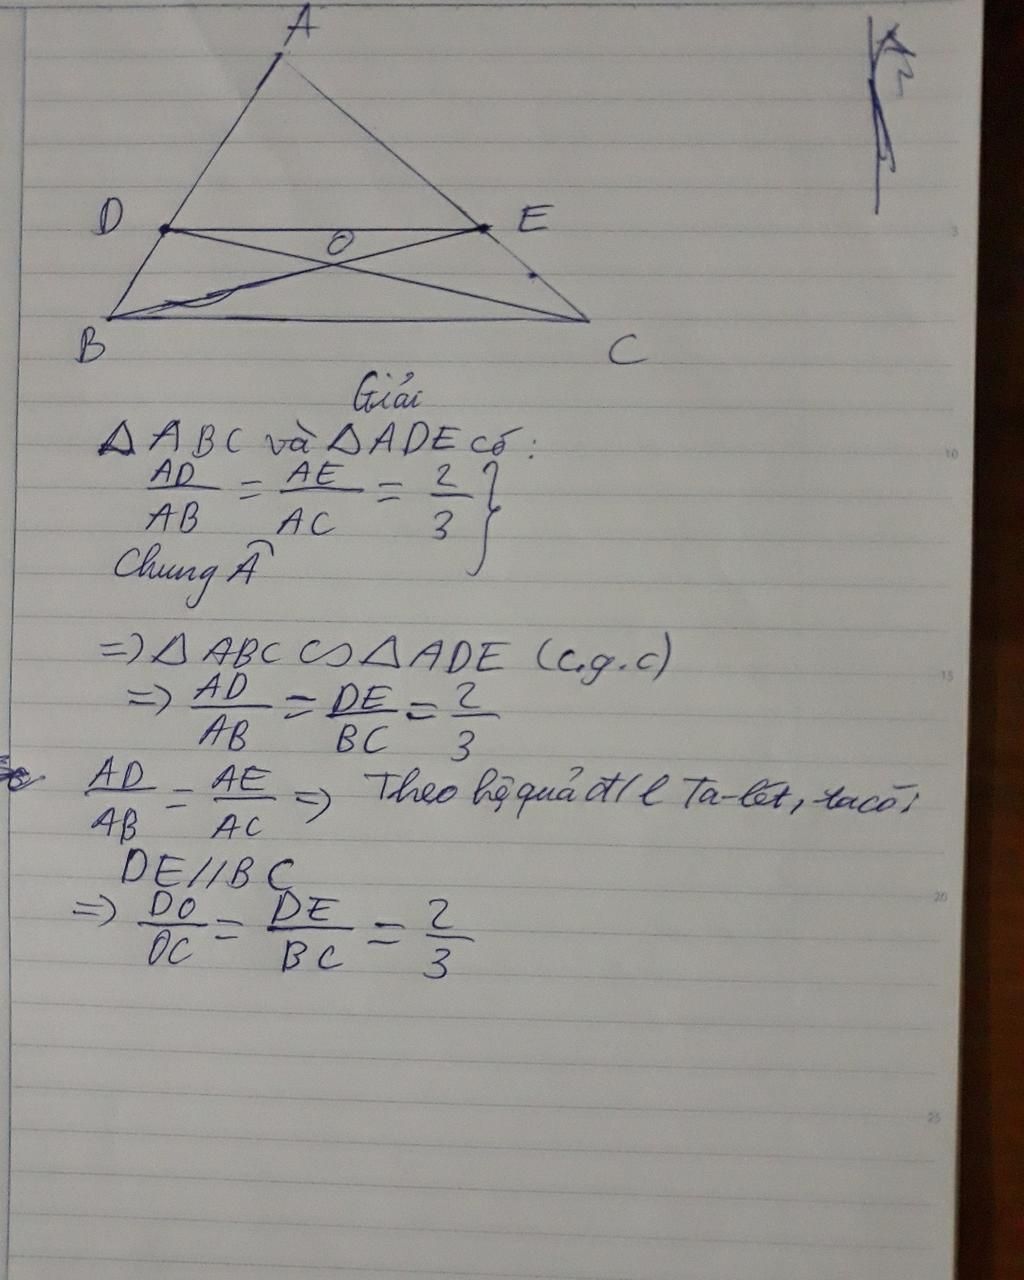 A
D
E
O
B
C
Giải
Δ ABC và Δ ADE có:
AD/AB = AE/AC = 2/3 }
Chung Â
=> Δ ABC ∽ Δ ADE (c.g.c)
=> AD/AB = DE/BC = 2/3
AD/AB = AE/AC => Theo hệ quả đ/l Ta-lét, ta có:
DE//BC
=> DO/OC = DE/BC = 2/3
5
10
15
20
25